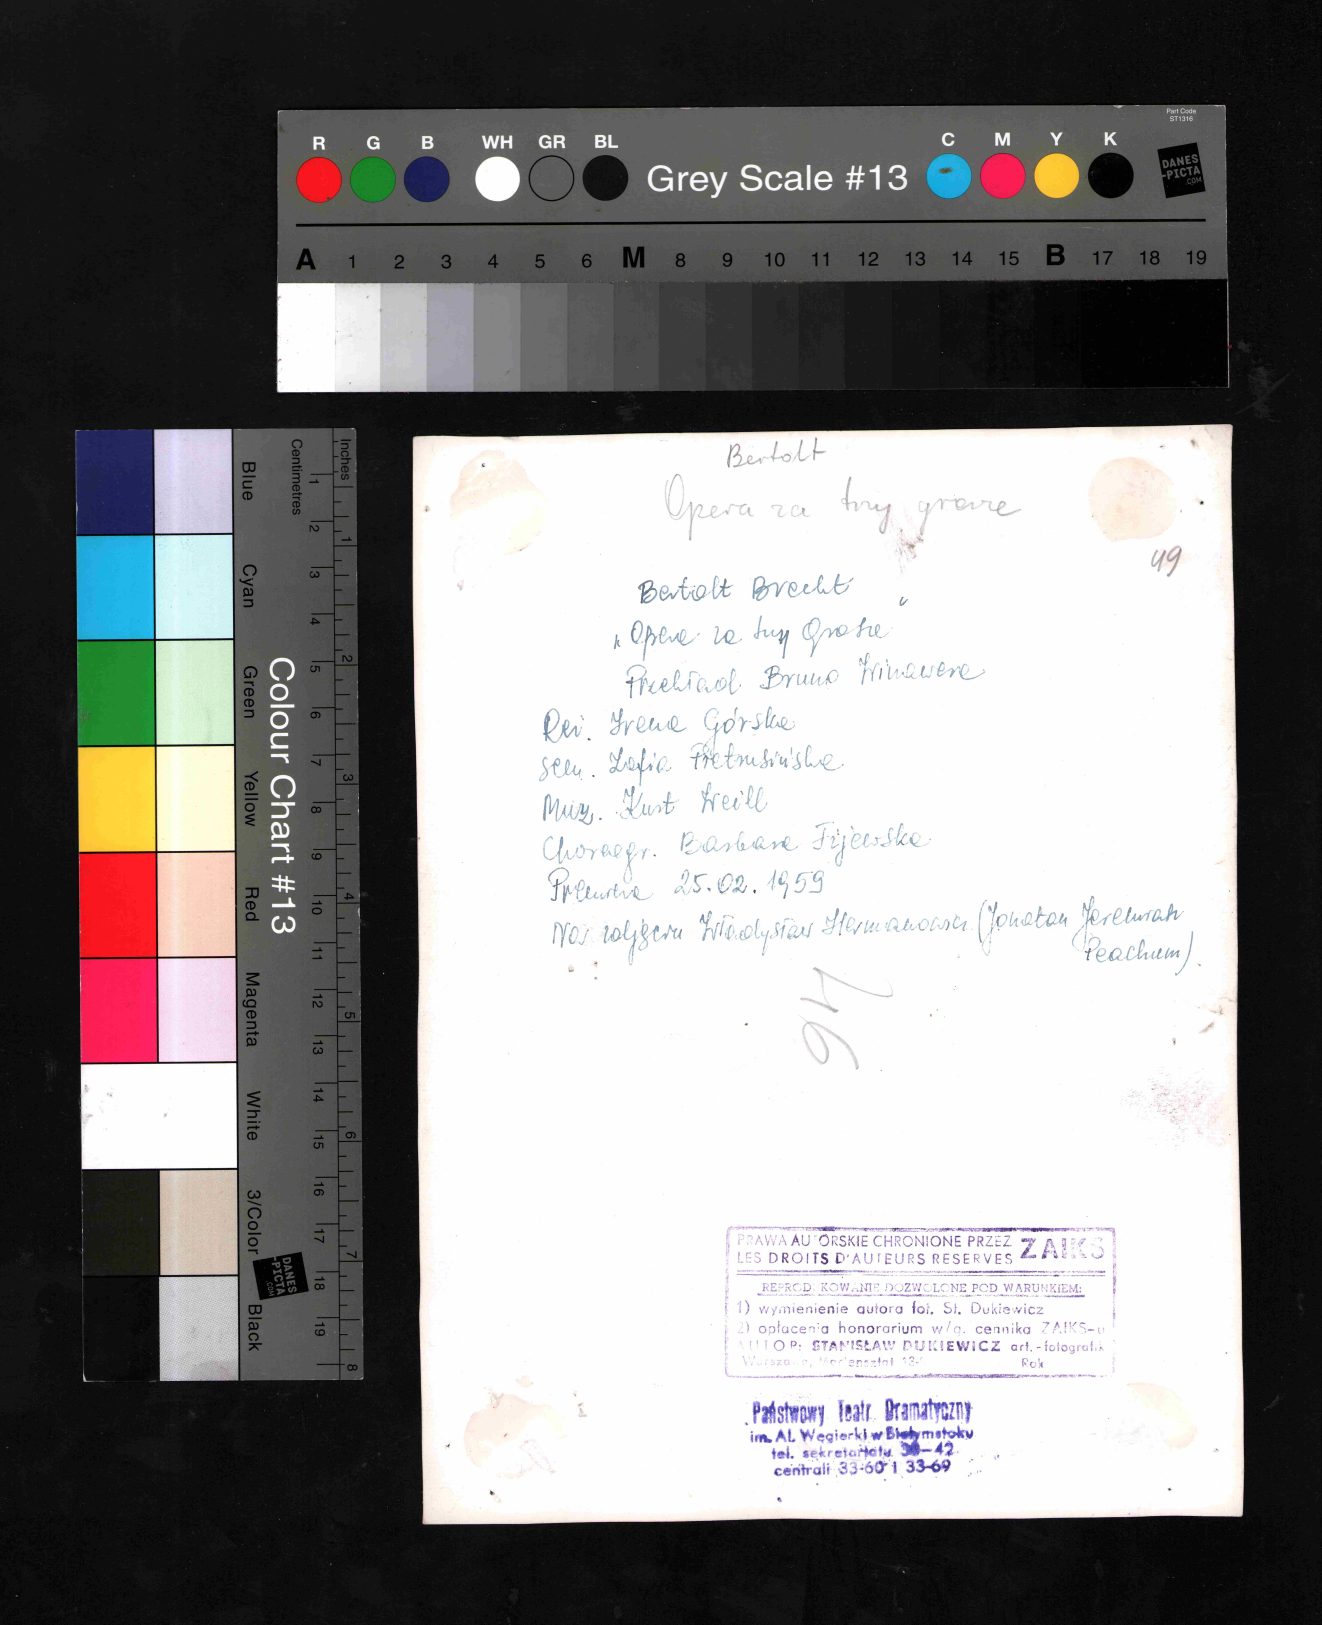 Part Code
ST1316
R G B WH GR BL Grey Scale #13 C M Y K
DANES
-PICTA
.COM
A 1 2 3 4 5 6 M 8 9 10 11 12 13 14 15 B 17 18 19
Colour Chart #13
Blue Cyan Green Yellow Red Magenta White 3/Color Black
Centimetres
1 2 3 4 5 6 7 8 9 10 11 12 13 14 15 16 17 18 19
Inches
1 2 3 4 5 6 7 8
DANES
-PICTA
.COM
Bertolt
Opera za trzy grosze
49
Bertolt Brecht
„Opera za trzy Grosze"
Przekład Bruno Winawera
Reż. Irena Górska
Scen. Zofia Pietrusińska
Muz. Kurt Weill
Choreogr. Barbara Fijewska
Premiera 25.02.1959
Na zdjęciu Władysław Hermanowicz (Jonatan Jeremiah
Peachum)
46
PRAWA AUTORSKIE CHRONIONE PRZEZ ZAIKS
LES DROITS D'AUTEURS RESERVES
REPRODUKOWANIE DOZWOLONE POD WARUNKIEM:
1) wymienienie autora fot. St. Dukiewicz
2) opłacenia honorarium w/g. cennika ZAIKS-u
AUTOR: STANISŁAW DUKIEWICZ art.-fotografik
Warszawa, Mariensztat 13- Rok
Państwowy Teatr Dramatyczny
im. Al. Węgierki w Białymstoku
tel. sekretariatu 30-42
centrali 33-60 i 33-69